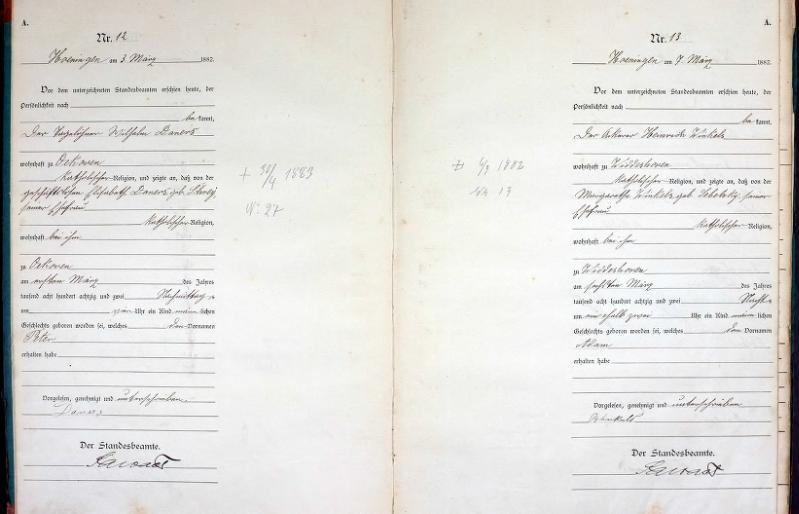 A.
Nr. 12
Hoeningen am 3. März 1882.
Vor dem unterzeichneten Standesbeamten erschien heute, der
Persönlichkeit nach
bekannt,
Der Tagelöhner Wilhelm Daners
wohnhaft zu Oekoven
katholischer Religion, und zeigte an, daß von der
Elisabeth Daners geb.
seiner Ehefrau
katholischer Religion,
wohnhaft bei ihm
zu Oekoven
am ersten März des Jahres
tausend acht hundert achtzig und zwei Nachmittags
um Uhr ein Kind männlichen
Geschlechts geboren worden sei, welches den Vornamen
Peter
erhalten habe
Vorgelesen, genehmigt und unterschrieben
Daners
Der Standesbeamte.
+ 30/4 1883
No 27
A.
Nr. 13
Hoeningen am 7. März 1882.
Vor dem unterzeichneten Standesbeamten erschien heute, der
Persönlichkeit nach
bekannt,
Der Ackerer Heinrich Winkels
wohnhaft zu Widdeshoven
katholischer Religion, und zeigte an, daß von der
Margaretha Winkels geb. seiner
Ehefrau
katholischer Religion,
wohnhaft bei ihm
zu Widdeshoven
am sechsten März des Jahres
tausend acht hundert achtzig und zwei Nachts
um ein halb zwei Uhr ein Kind männlichen
Geschlechts geboren worden sei, welches den Vornamen
Adam
erhalten habe
Vorgelesen, genehmigt und unterschrieben
Winkels
Der Standesbeamte.
1882
No 13